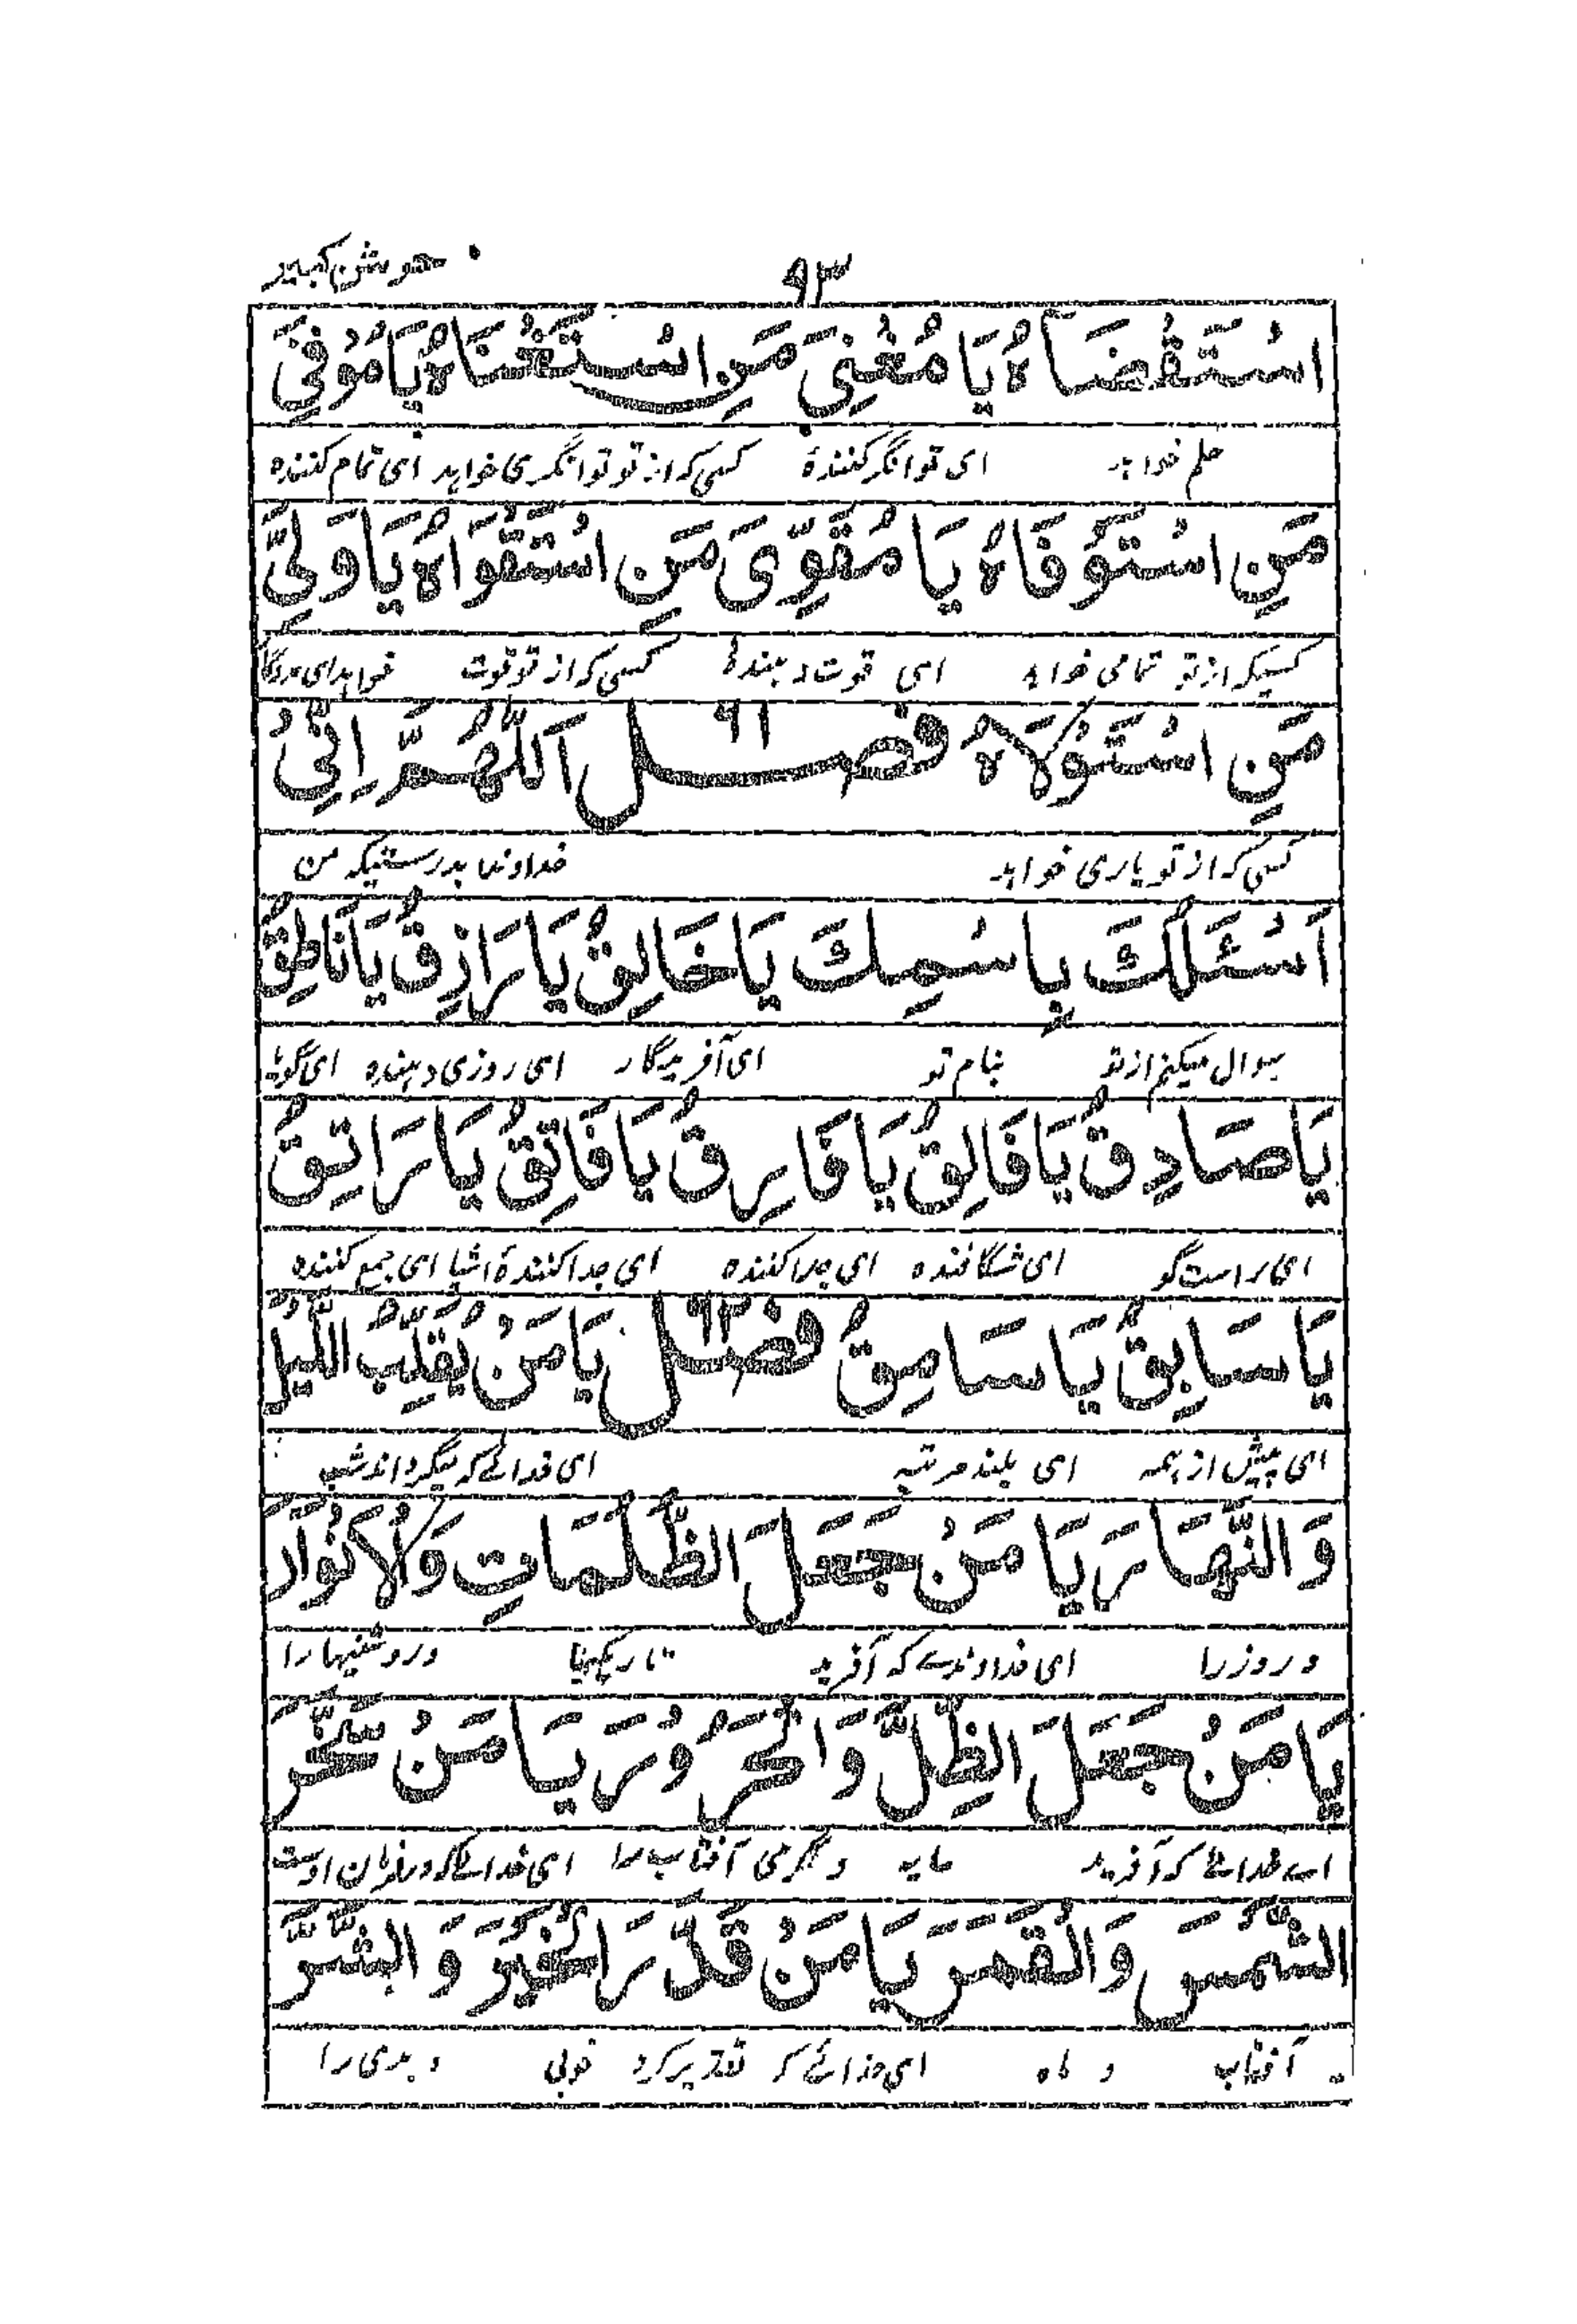 ۹۳ جوشن کبیر
اسْتَقْضَاهُ يَا مُغْنِيَ مَنِ اسْتَغْنَاهُ يَا مُوفِيَ
خواہد ای توانگر کنندۂ کسی کہ از تو توانگری خواہد ای تمام کنندہ
مَنِ اسْتَوْفَاهُ يَا مُقَوِّيَ مَنِ اسْتَقْوَاهُ يَا وَلِيَّ
کسیکہ از تو تمامی خواہد ای قوت دہندۂ کسی کہ از تو قوت خواہد ای
مَنِ اسْتَوْلَاهُ فصل ۶۱ اَللّٰهُمَّ اِنِّيْ
کسی کہ از تو یاری خواہد خداوندا بدرستیکہ من
اَسْئَلُكَ بِاسْمِكَ يَا خَالِقُ يَا رَازِقُ يَا نَاطِقُ
سوال میکنم از تو بنام تو ای آفریدگار ای روزی دہندہ ای
يَا صَادِقُ يَا فَالِقُ يَا فَارِقُ يَا فَاتِقُ يَا رَاتِقُ
ای راست گو ای شگافندہ ای جدا کنندہ ای جدا کنندۂ اشیا ای جمع کنندہ
يَا سَابِقُ يَا سَامِقُ فصل ۶۲ يَا مَنْ يُقَلِّبُ اللَّيْلَ
ای پیش از ہمہ ای بلند مرتبہ ای خدائے کہ میگرداند شب
وَ النَّهَارَ يَا مَنْ جَعَلَ الظُّلُمَاتِ وَالْاَنْوَارَ
و روز را ای خداوندے کہ آفرید تاریکیہا و روشنیہا را
يَا مَنْ جَعَلَ الظِّلَّ وَ الْحَرُوْرَ يَا مَنْ سَخَّرَ
اے خدائے کہ آفرید سایہ و گرمی آفتاب را ای خدائے کہ در فرمان اوست
الشَّمْسَ وَ الْقَمَرَ يَا مَنْ قَدَّرَ الْخَيْرَ وَ الشَّرَّ
آفتاب و ماہ ای خدائے کہ تقدیر کرد خوبی و بدی را